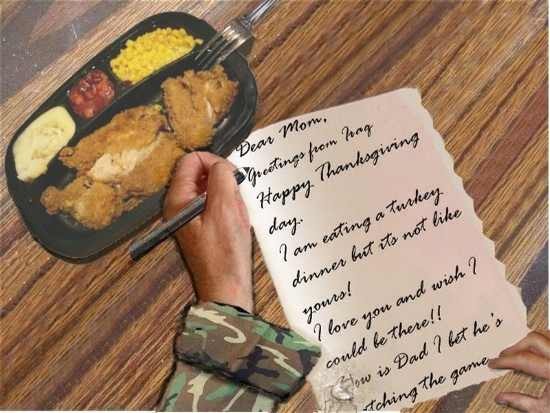 Dear Mom,
Greetings from Iraq
Happy Thanksgiving
day.
I am eating a turkey
dinner but its not like
yours!
I love you and wish I
could be there!!
How is Dad I bet he's
watching the game